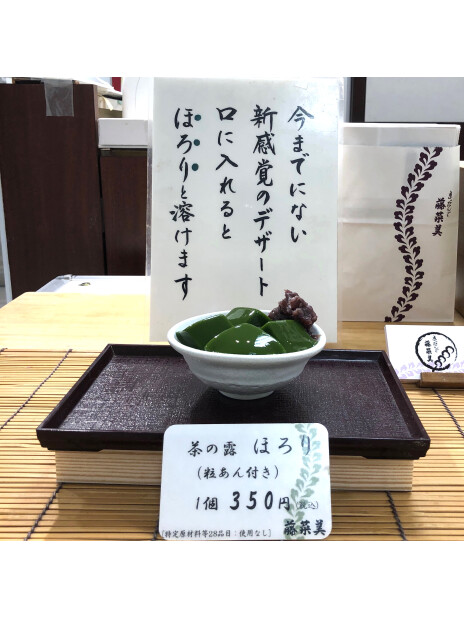 今までにない
新感覚のデザート
口に入れると
ほろりと溶けます
藤菜美
藤菜美
茶の露 ほろり
(粒あん付き)
1個 350円(税込)
[特定原材料等28品目:使用なし]
藤菜美